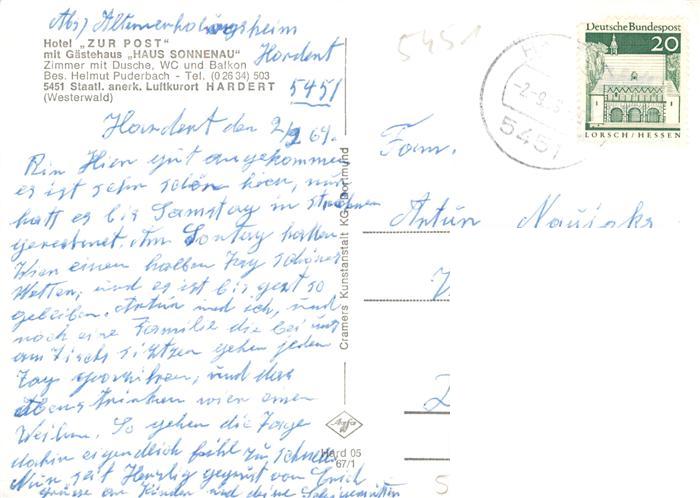 Abs) Altenerholungsheim
Hotel „ZUR POST"
mit Gästehaus „HAUS SONNENAU"
Zimmer mit Dusche, WC und Balkon
Bes. Helmut Puderbach - Tel. (0 26 34) 503
5451 Staatl. anerk. Luftkurort HARDERT
(Westerwald)
Hardert
5451
Hardert den 2/9 69.
Bin Hier gut angekommen
es ist sehr schön hier, nur
hatt es bis Samstag in strehmen
geregnet. Am Sontag hatten
Wier einen halben Tag schönes
Wetter, und es ist bis jetzt so
geblieben. Artur und ich, und
noch eine Familie die bei uns
am Tisch sitzen gehen jeden
Tag spazieren, und das
Abens trinken wier einen
Weibn. So gehen die Tage
dahin eigendlich fühl zu schnell
Nun seit Herzlig gegrüst von Erich
grüsse an Kinder und deine
Cramers Kunstanstalt KG, Dortmund
Agfa
Hard 05
67/1
5451
Deutsche Bundespost
20
LORSCH/HESSEN
-2.-9.
5451
Fam.
Artur